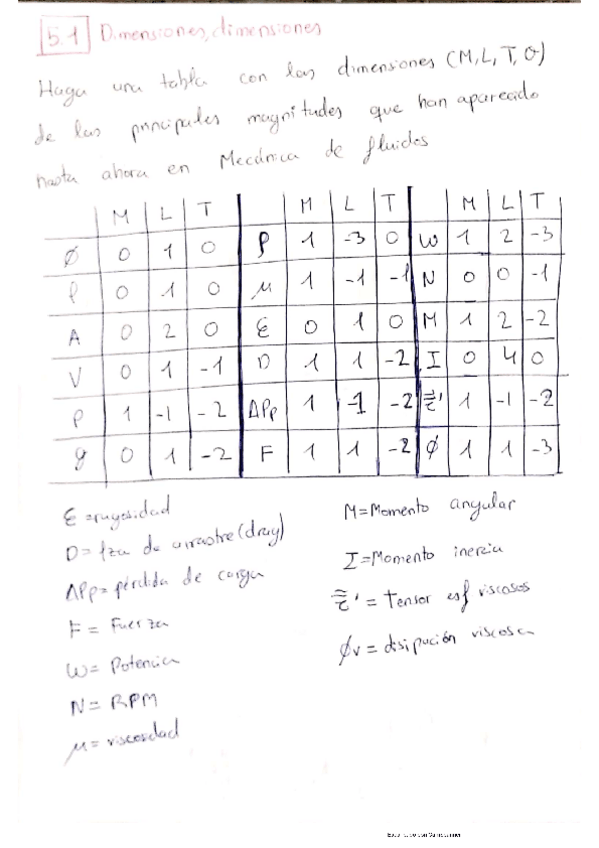 5.1 Dimensiones, dimensiones
Haga una tabla con las dimensiones (M, L, T, θ)
de las principales magnitudes que han aparecido
hasta ahora en Mecánica de fluidos
M L T M L T M L T
Ø 0 1 0 ρ 1 -3 0 W 1 2 -3
l 0 1 0 μ 1 -1 -1 N 0 0 -1
A 0 2 0 Ɛ 0 1 0 M 1 2 -2
V 0 1 -1 D 1 1 -2 I 0 4 0
P 1 -1 -2 ΔPp 1 -1 -2 τ' 1 -1 -2
g 0 1 -2 F 1 1 -2 Ø 1 1 -3
Ɛ = rugosidad
D = fza de arrastre (drag)
ΔPp = pérdida de carga
F = Fuerza
W = Potencia
N = RPM
μ = viscosidad
M = Momento angular
I = Momento inercia
τ' = Tensor esf viscosos
Øv = disipación viscosa